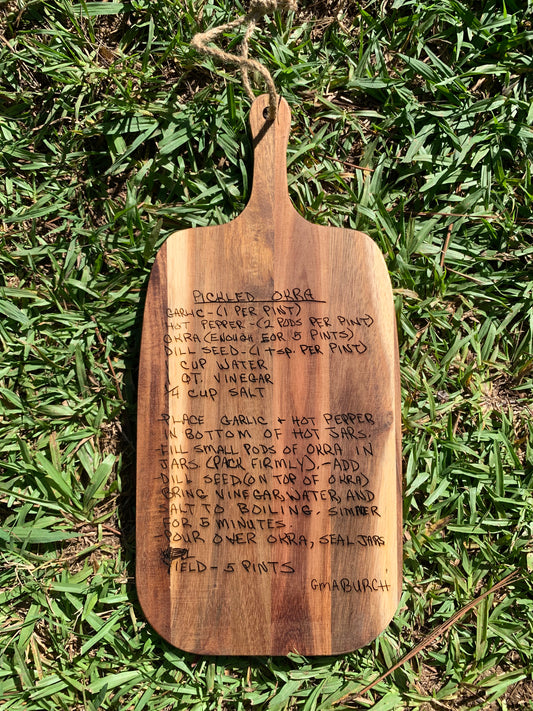 PICKLED OKRA
GARLIC-(1 PER PINT)
HOT PEPPER-(2 PODS PER PINT)
OKRA (ENOUGH FOR 5 PINTS)
DILL SEED-(1 tsp. PER PINT)
CUP WATER
QT. VINEGAR
CUP SALT
-PLACE GARLIC + HOT PEPPER
IN BOTTOM OF HOT JARS.
-FILL SMALL PODS OF OKRA IN
JARS (PACK FIRMLY),-ADD
DILL SEED (ON TOP OF OKRA)
BRING VINEGAR, WATER, AND
SALT TO BOILING. SIMMER
FOR 5 MINUTES.
-POUR OVER OKRA, SEAL JARS
YIELD-5 PINTS
GMABURCH